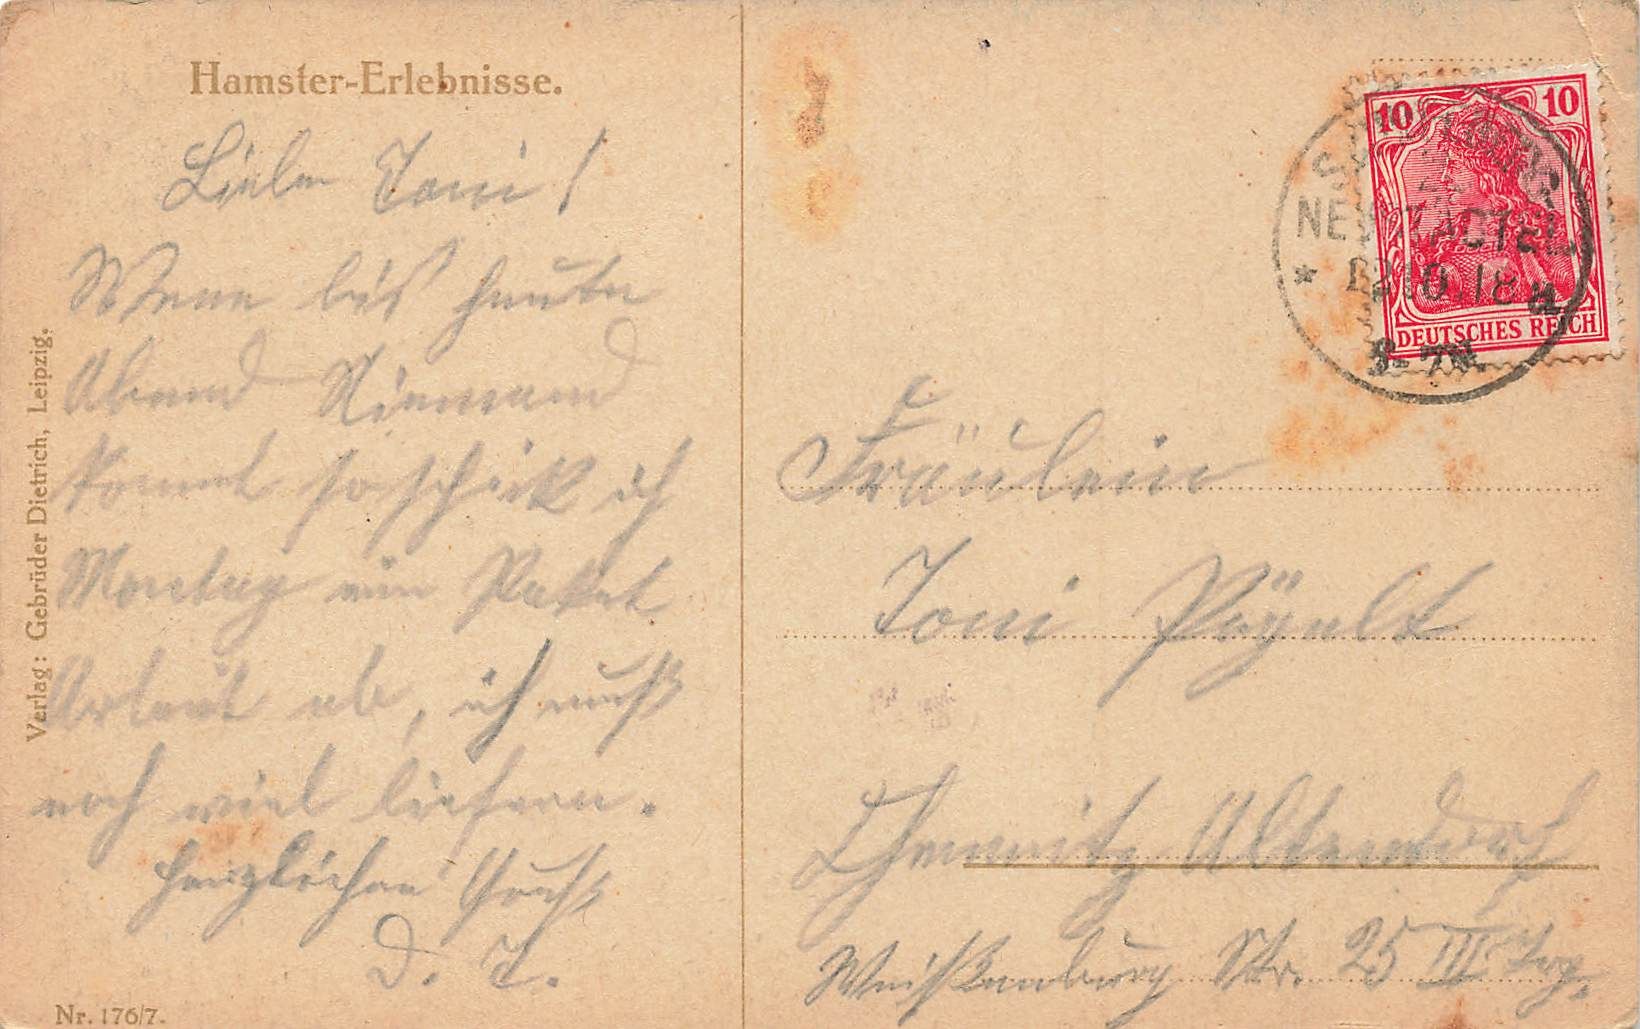 Hamster-Erlebnisse.
Liebe Toni!
Wenn bis heute
Abend Niemand
kommt so schick ich
Montag ein Paket
ab, ich muß
noch viel liefern.
Herzlichen Gruß
D. T.
Verlag: Gebrüder Dietrich, Leipzig.
Nr. 176/7.
10 10
DEUTSCHES REICH
Fräulein
Toni
Chemnitz Altendorf
Weißenburg Str. 25 III